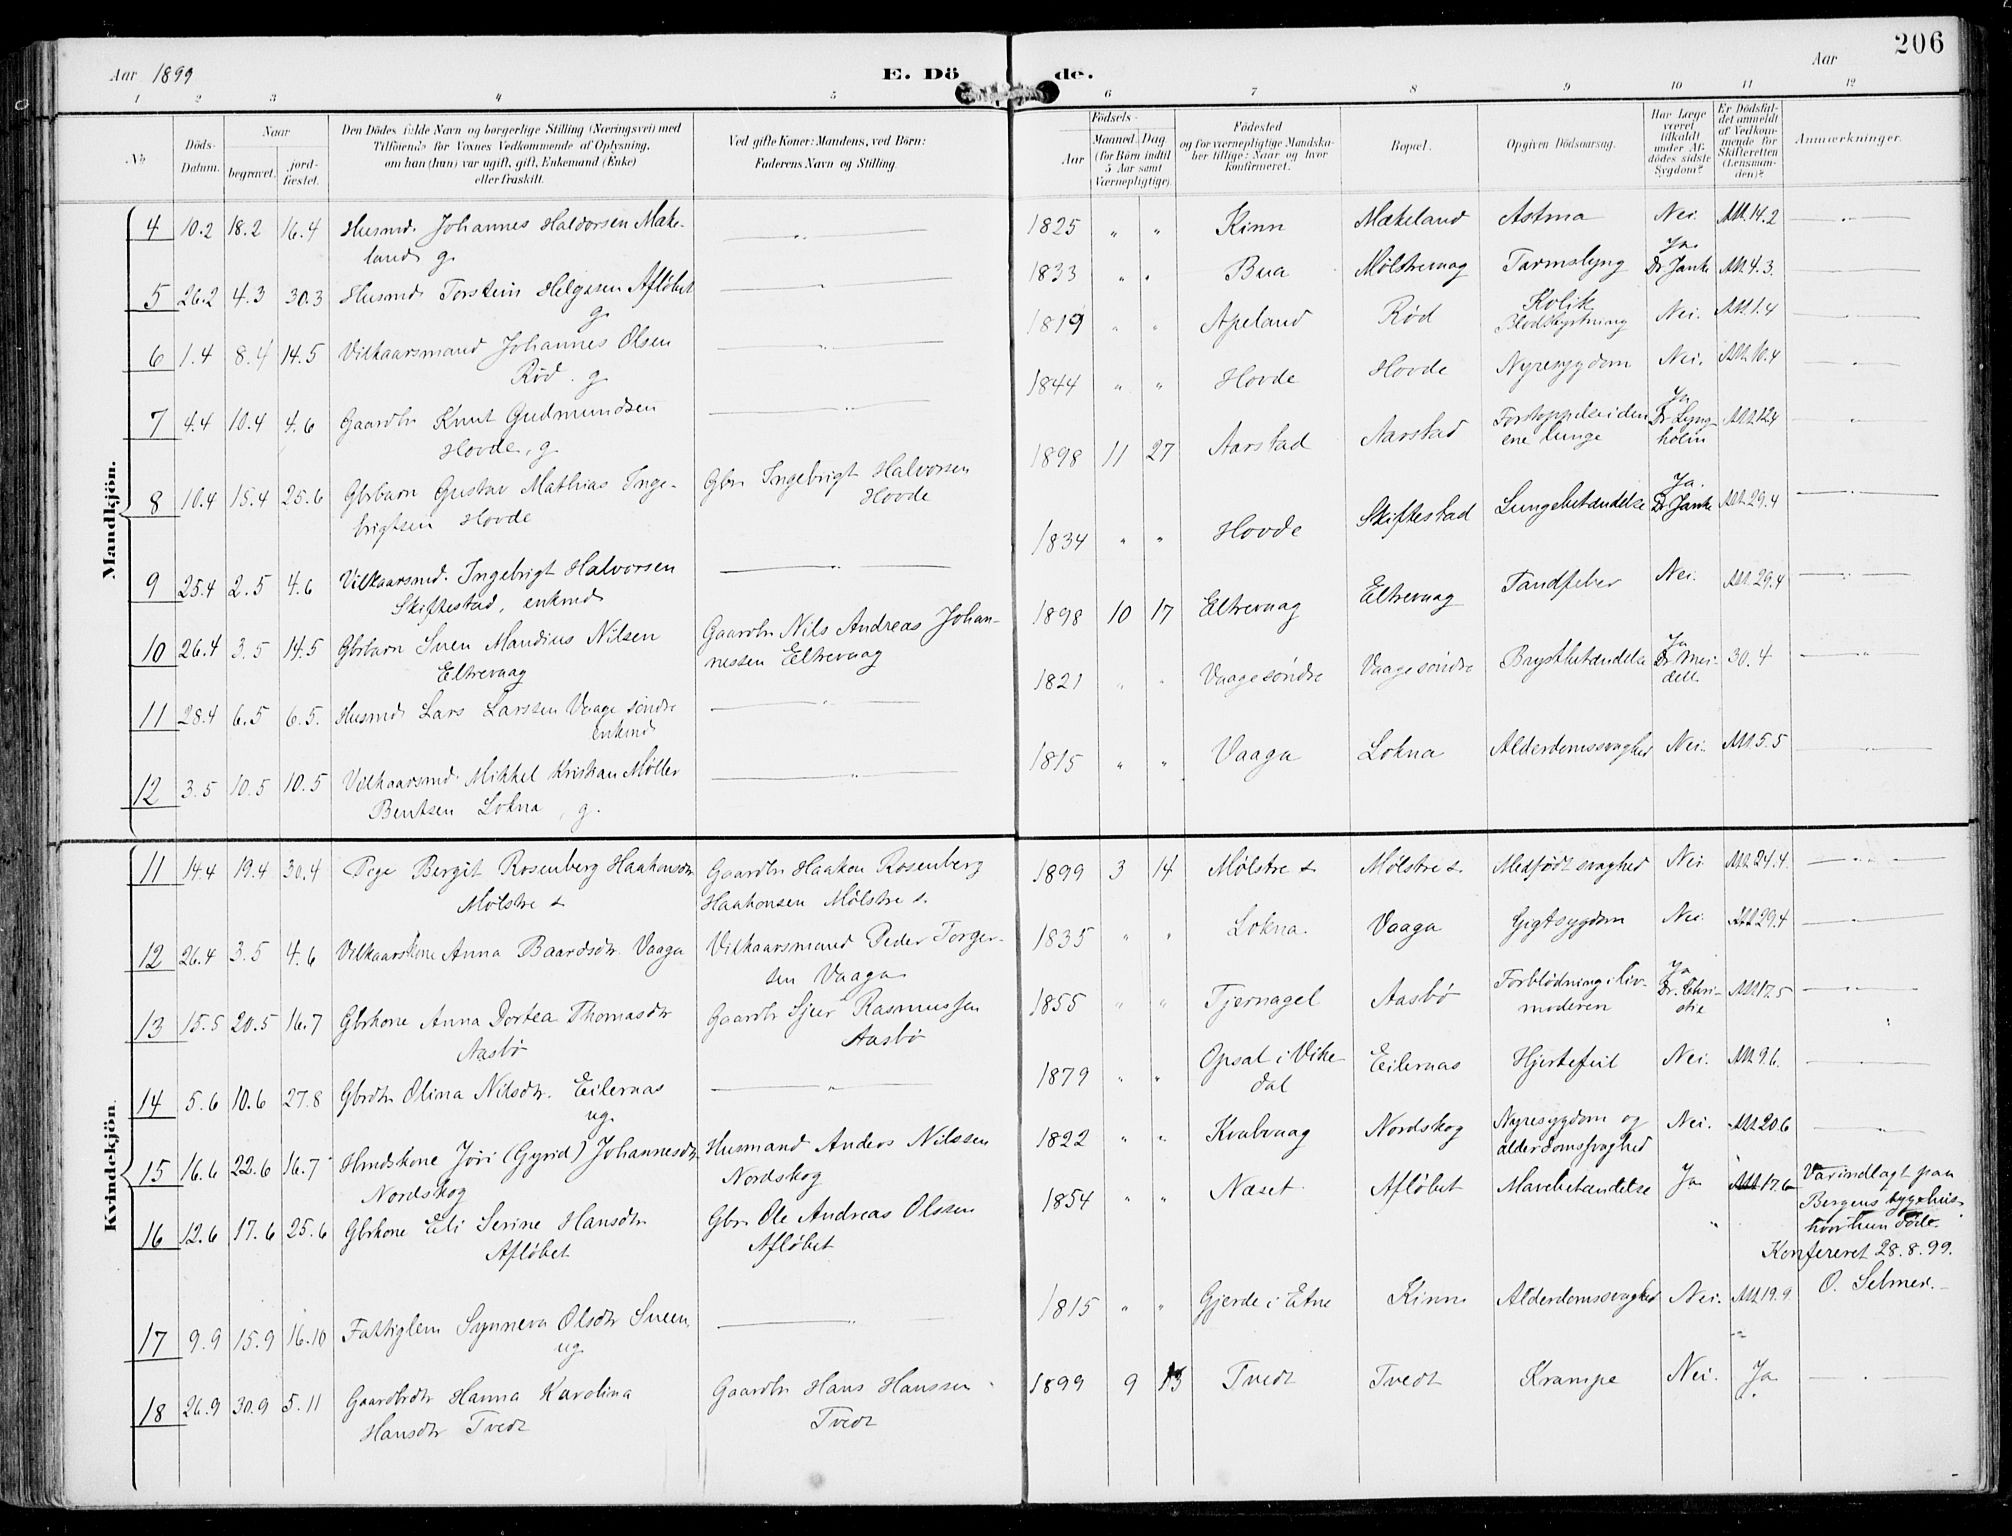 206
Aar 1899
E. Dö de.
Aar
1 2 3 4 5 6 7 8 9 10 11 12
No
Döds-
Datum.
Naar
begravet.
jord-
fæstet.
Den Dödes fulde Navn og borgerlige Stilling (Næringsvei) med
Tilföiende for Voxnes Vedkommende af Oplysning,
om han (hun) var ugift, gift, Enkemand (Enke)
eller fraskilt.
Ved gifte Koner: Mandens, ved Börn:
Faderens Navn og Stilling.
Födsels-
Aar
Maaned. Dag
(for Börn indtil
5 Aar samt
Værnepligtige).
Födested
og for værnepligtige Mandska-
ber tillige: Naar og hvor
konfirmeret.
Bopæl.
Opgiven Dödsaarsag.
Har Læge
været
tilkaldt
under Af-
dödes sidste
Sygdom?
Er Dödsfal-
det anmeldt
af Vedkom-
mende for
Skifteretten
(Lensman-
den)?
Anmærkninger.
Mandkjön.
4 10.2 18.2 16.4 Husmd. Johannes Haldorsen Make-
land g.
1825 " " Kinn Mækeland Astma Nei. Att. 14.2
5 26.2 4.3 30.3 Husmd. Torstein Helgesen Afløbet
g.
1833 " " Bua Mølstrevaag Tarmslyng Ja
Dr Janke Att. 4.3.
6 1.4 8.4 14.5 Vilkaarsmand Johannes Olsen
Rød. g.
1819 " " Apeland Rød Kolik
Blodstyrtning Nei. Att. 1.4
7 4.4 10.4 4.6 Gaardbr Knut Gudmundsen
Hovde, g.
1844 " " Hovde Hovde Nyresygdom Nei. Att. 10.4
8 10.4 15.4 25.6 Gbrbarn Gustav Mathias Inge-
brigtsen Hovde
Gbr Ingebrigt Halvorsen
Hovde
1898 11 27 Aarstad Aarstad Forstoppelse i den
ene lunge Ja
Dr Lyng-
holm Att. 12.4
9 25.4 2.5 4.6 Vilkaarsmd. Ingebrigt Halvorsen
Skiftestad, enkmd
1834 " " Hovde Skiftestad Lungebetændelse Ja.
Dr. Janke Att. 29.4
10 26.4 3.5 14.5 Gbrbarn Sven Mandius Nilsen
Eltrevaag
Gaardbr Nils Andreas Johan-
nessen Eltrevaag
1898 10 17 Eltrevaag Eltrevaag Tandfeber Nei. Att. 29.4
11 28.4 6.5 6.5. Husmd. Lars Larssen Vaage søndre
enkmd
1821 " " Vaage søndre Vaage søndre Brystbetændelse Ja
30.4
12 3.5 10.5 10.5 Vilkaarsmd. Mikkel Kristian Møller
Bentsen Lokna, g.
1815 " " Vaaga Lokna Alderdomssvaghed Nei. Att. 5.5
Kvindekjön.
11 14.4 19.4 30.4 Pige Bergit Rosenberg Haakonsdtr
Mølstre s
Gaardbr Haakon Rosenberg
Haakonsen Mølstre s.
1899 3 14 Mølstre s Mølstre s. Medfødt svaghed Nei Att. 24.4.
12 26.4 3.5 4.6 Vilkaarskone Anna Baardsdtr. Vaaga
Vilkaarsmand Peder Torger-
sen Vaaga
1835 " " Lokna. Vaaga Gigtsygdom Nei. Att. 29.4
13 15.5 20.5 16.7 Gbrkone Anna Dortea Thomasdtr
Aasbø
Gaardbr Sjur Rasmussen
Aasbø
1855 " " Tjernagel Aasbø Forblødning i liv-
moderen Ja
Dr. Chri-
stie Att 17.5
14 5.6 10.6 27.8 Gbrdtr Olina Nilsdtr. Eilernas
ug.
1879 " " Opsal i Vike-
dal Eilernas Hjertefeil Nei. Att. 9.6.
15 16.6 22.6 16.7 Hmdskone Jøri (Gyrid) Johannesdtr
Nordskog
Husmand Anders Nilssen
Nordskog
1822 " " Kvalvaag Nordskog Nyresygdom og
alderdomssvaghed Nei. Att 20.6
16 12.6 17.6 25.6 Gbrkone Eli Serine Hansdtr
Afløbet
Gbr. Ole Andreas Olssen
Afløbet
1854 " " Næset Afløbet Mavebetændelse Ja Att 17.6
Var indlagt paa
Bergens sygehus
hvor hun døde.
Konfereret 28.8.99.
O. Selmer.
17 9.9 15.9 16.10 Fattiglem Synneva Olsdtr Sveen,
ug
1815 " " Gjerde i Etne Kinn Alderdomssvaghed Nei. Att 19.9
18 26.9 30.9 5.11 Gaardbrdtr Hanna Karolina
Hansdtr Tvedt
Gaardbr Hans Hanssen
Tvedt
1899 9 13 Tvedt Tvedt Krampe Nei. Ja